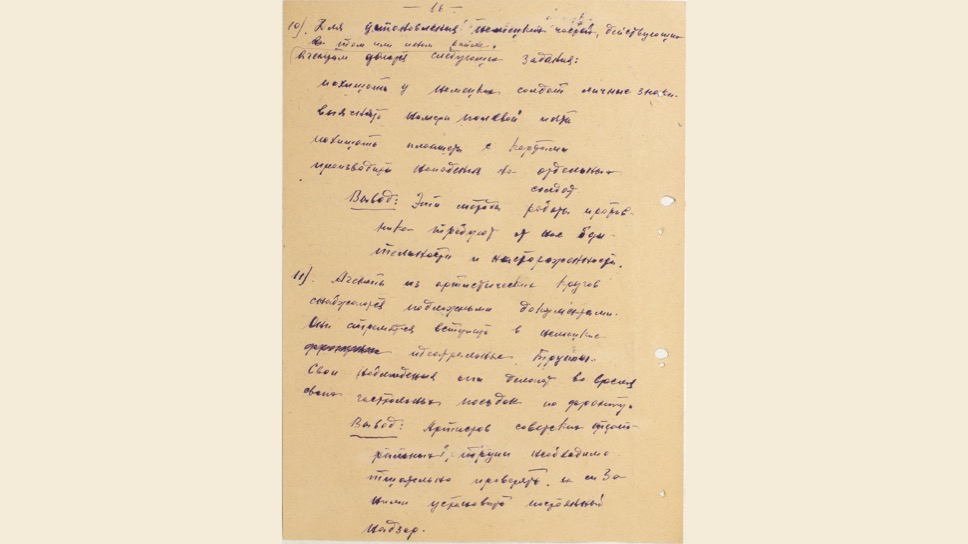 - 16 -
10). Для установления немецких частей, действующих
в том или ином районе.
Агентам даются следующие задания:
похищать у немецких солдат личные знаки.
выяснять номера полевой почты
похищать планшеты с картами
производить нападения на отдельных
солдат
Вывод: Эти методы работы против-
ника требуют от нас бди-
тельности и настороженности.
11). Агенты из артистических кругов
снабжаются подложными документами.
Они стремятся вступать в немецкие
театральные труппы.
Свои наблюдения они делают во время
своих гастрольных поездок по фронту.
Вывод: Артистов советских театральных
трупп необходимо
тщательно проверять и за
ними установить постоянный
надзор.